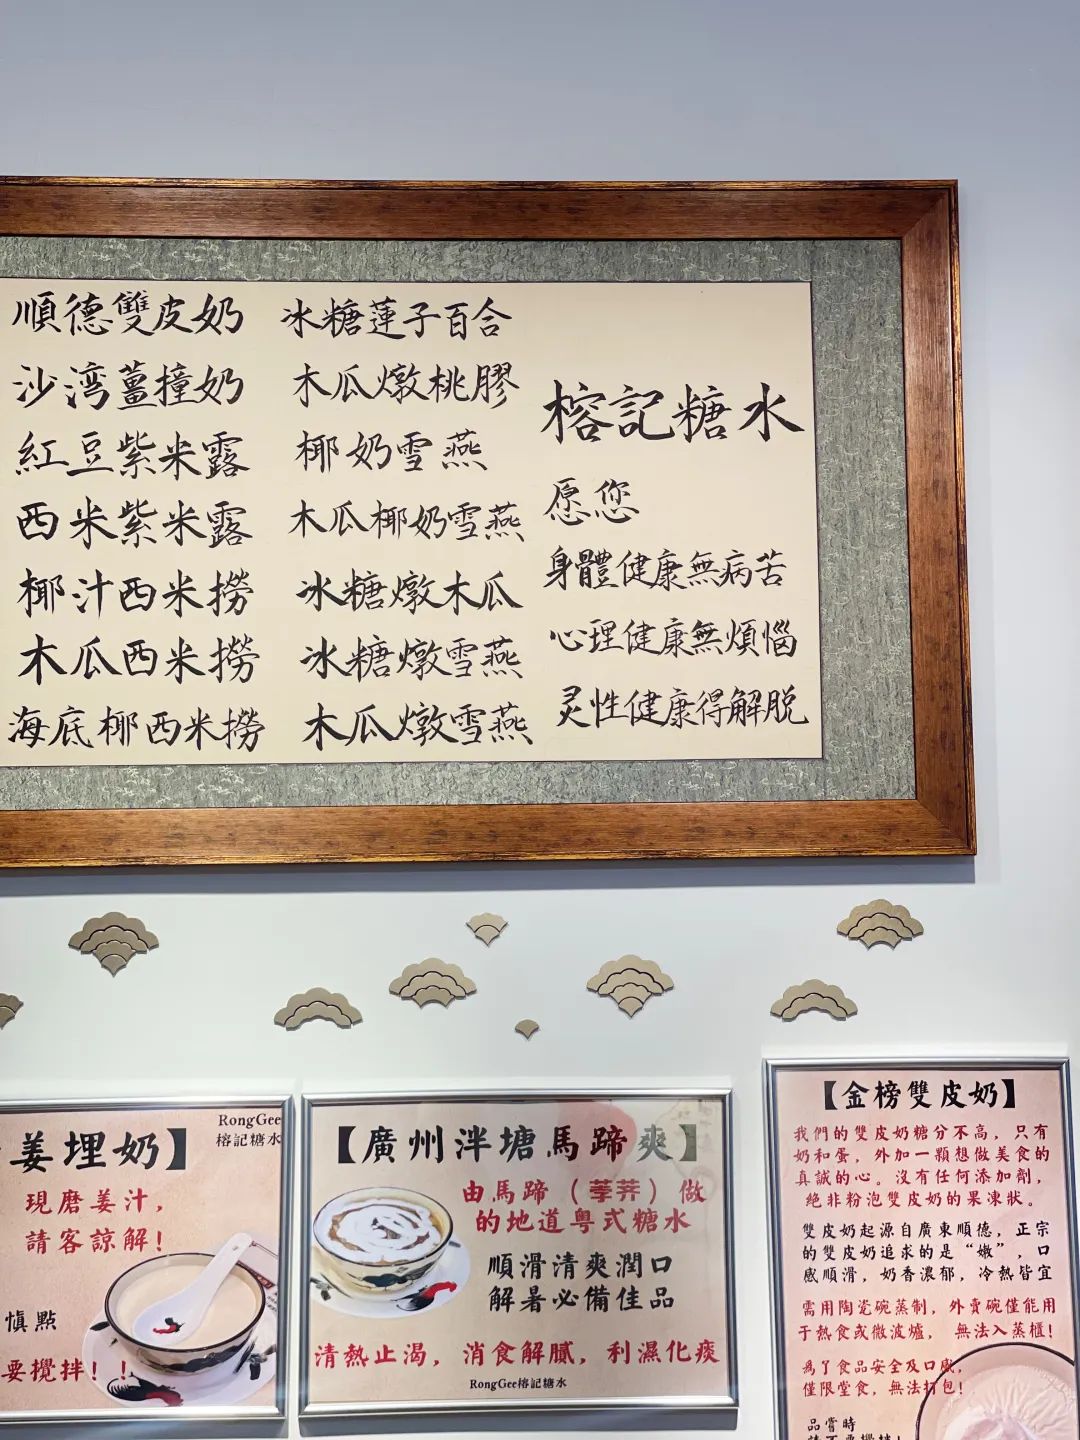 順德雙皮奶
沙湾薑撞奶
紅豆紫米露
西米紫米露
椰汁西米撈
木瓜西米撈
海底椰西米撈
冰糖蓮子百合
木瓜燉桃膠
椰奶雪燕
木瓜椰奶雪燕
冰糖燉木瓜
冰糖燉雪燕
木瓜燉雪燕
榕記糖水
愿您
身體健康無病苦
心理健康無煩惱
灵性健康得解脱
姜埋奶】
RongGee
榕記糖水
現磨姜汁，
請客諒解！
慎點
要攪拌！！
【廣州泮塘馬蹄爽】
由馬蹄（荸荠）做
的地道粤式糖水
順滑清爽潤口
解暑必備佳品
清熱止渴，消食解膩，利濕化痰
RongGee榕記糖水
【金榜雙皮奶】
我們的雙皮奶糖分不高，只有
奶和蛋，外加一顆想做美食的
真誠的心。沒有任何添加劑，
絕非粉泡雙皮奶的果凍狀。
雙皮奶起源自廣東順德，正宗
的雙皮奶追求的是“嫩”，口
感順滑，奶香濃郁，冷熱皆宜
需用陶瓷碗蒸制，外賣碗僅能用
于熱食或微波爐，無法入蒸櫃！
為了食品安全及口感，
僅限堂食，無法打包！
品嘗時